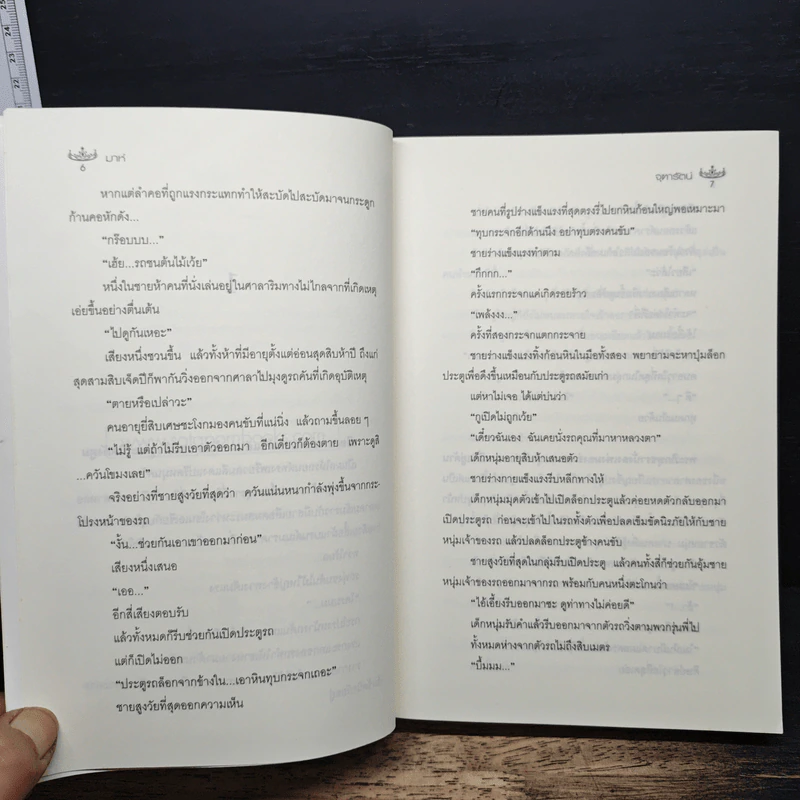 6 มาห์
หากแต่ลำคอที่ถูกแรงกระแทกทำให้สะบัดไปสะบัดมาจนกระดูก
ก้านคอหักดัง...
“กร๊อบบบ...”
“เฮ้ย...รถชนต้นไม้เว้ย”
หนึ่งในชายห้าคนที่นั่งเล่นอยู่ในศาลาริมทางไม่ไกลจากที่เกิดเหตุ
เอ่ยขึ้นอย่างตื่นเต้น
“ไปดูกันเหอะ”
เสียงหนึ่งชวนขึ้น แล้วทั้งห้าที่มีอายุตั้งแต่อ่อนสุดสิบห้าปี ถึงแก่
สุดสามสิบเจ็ดปีก็พากันวิ่งออกจากศาลาไปมุงดูรถคันที่เกิดอุบัติเหตุ
“ตายหรือเปล่าวะ”
คนอายุยี่สิบเศษชะโงกมองคนขับที่แน่นิ่ง แล้วถามขึ้นลอย ๆ
“ไม่รู้ แต่ถ้าไม่รีบเอาตัวออกมา อีกเดี๋ยวก็ต้องตาย เพราะดูสิ
...ควันโขมงเลย”
จริงอย่างที่ชายสูงวัยที่สุดว่า ควันแน่นหนากำลังพุ่งขึ้นจากกระ-
โปรงหน้าของรถ
“งั้น...ช่วยกันเอาเขาออกมาก่อน”
เสียงหนึ่งเสนอ
“เออ...”
อีกสี่เสียงตอบรับ
แล้วทั้งหมดก็รีบช่วยกันเปิดประตูรถ
แต่ก็เปิดไม่ออก
“ประตูรถล็อกจากข้างใน...เอาหินทุบกระจกเถอะ”
ชายสูงวัยที่สุดออกความเห็น
จุฑารัตน์ 7
ชายคนที่รูปร่างแข็งแรงที่สุดตรงรี่ไปยกหินก้อนใหญ่พอเหมาะมา
“ทุบกระจกอีกด้านนึง อย่าทุบตรงคนขับ”
ชายร่างแข็งแรงทำตาม
“กึกกก...”
ครั้งแรกกระจกแค่เกิดรอยร้าว
“เพล้งงง...”
ครั้งที่สองกระจกแตกกระจาย
ชายร่างแข็งแรงทิ้งก้อนหินในมือทั้งสอง พยายามจะหาปุ่มล็อก
ประตูเพื่อดึงขึ้นเหมือนกับประตูรถสมัยเก่า
แต่หาไม่เจอ ได้แต่บ่นว่า
“กูเปิดไม่ถูกเว้ย”
“เดี๋ยวฉันเอง ฉันเคยนั่งรถคุณที่มาหาหลวงตา”
เด็กหนุ่มอายุสิบห้าเสนอตัว
ชายร่างกายแข็งแรงรีบหลีกทางให้
เด็กหนุ่มมุดตัวเข้าไปเปิดล็อกประตูแล้วค่อยหดตัวกลับออกมา
เปิดประตูรถ ก่อนจะเข้าไปในรถทั้งตัวเพื่อปลดเข็มขัดนิรภัยให้กับชาย
หนุ่มเจ้าของรถ แล้วปลดล็อกประตูข้างคนขับ
ชายสูงวัยที่สุดในกลุ่มรีบเปิดประตู แล้วคนทั้งสี่ก็ช่วยกันอุ้มชาย
หนุ่มเจ้าของรถออกมาจากรถ พร้อมกับคนหนึ่งตะโกนว่า
“ไอ้เอี้ยงรีบออกมาซะ ดูท่าทางไม่ค่อยดี”
เด็กหนุ่มรับคำแล้วรีบออกมาจากตัวรถวิ่งตามพวกรุ่นพี่ไป
ทั้งหมดห่างจากตัวรถไม่ถึงสิบเมตร
“บึ้มมม...”
25
24
23
22